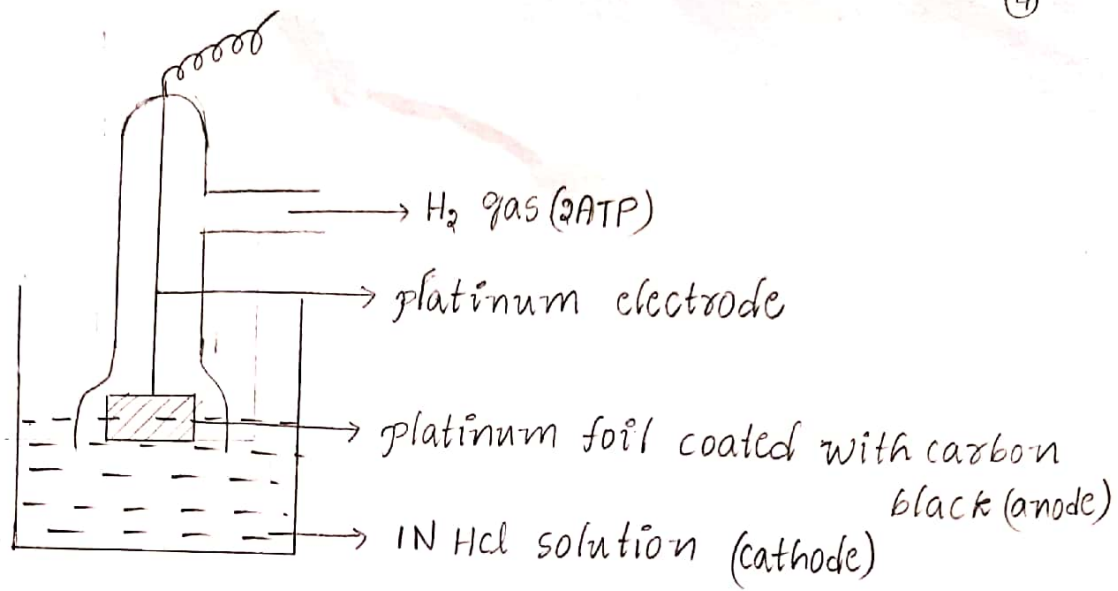 4
H₂ gas (2ATP)
platinum electrode
platinum foil coated with carbon
black (anode)
1N Hcl solution (cathode)